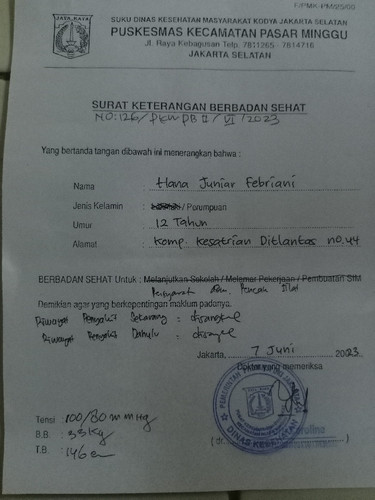 F/PMK-PM/05/00
JAYA RAYA
SUKU DINAS KESEHATAN MASYARAKAT KODYA JAKARTA SELATAN
PUSKESMAS KECAMATAN PASAR MINGGU
Jl. Raya Kebagusan Telp. 7811265 - 7814716
JAKARTA SELATAN
SURAT KETERANGAN BERBADAN SEHAT
NO: 126/PKM PB II / VI / 2023
Yang bertanda tangan dibawah ini menerangkan bahwa :
Nama : Hana Juniar Febriani
Jenis Kelamin : / Perempuan
Umur : 12 Tahun
Alamat : Komp. Kesatrian Ditlantas no.44
BERBADAN SEHAT Untuk : Melanjutkan Sekolah / Melamar Pekerjaan / Pembuatan SIM
Pencak Silat
Demikian agar yang berkepentingan maklum padanya.
Riwayat Penyakit Sekarang : disangkal
Riwayat Penyakit Dahulu :
Jakarta, 7 Juni 2023
Dokter yang memeriksa
DINAS KESEHATAN
(dr. )
Tensi : 100/80 mmHg
B.B. : 33 kg
T.B. : 146 cm